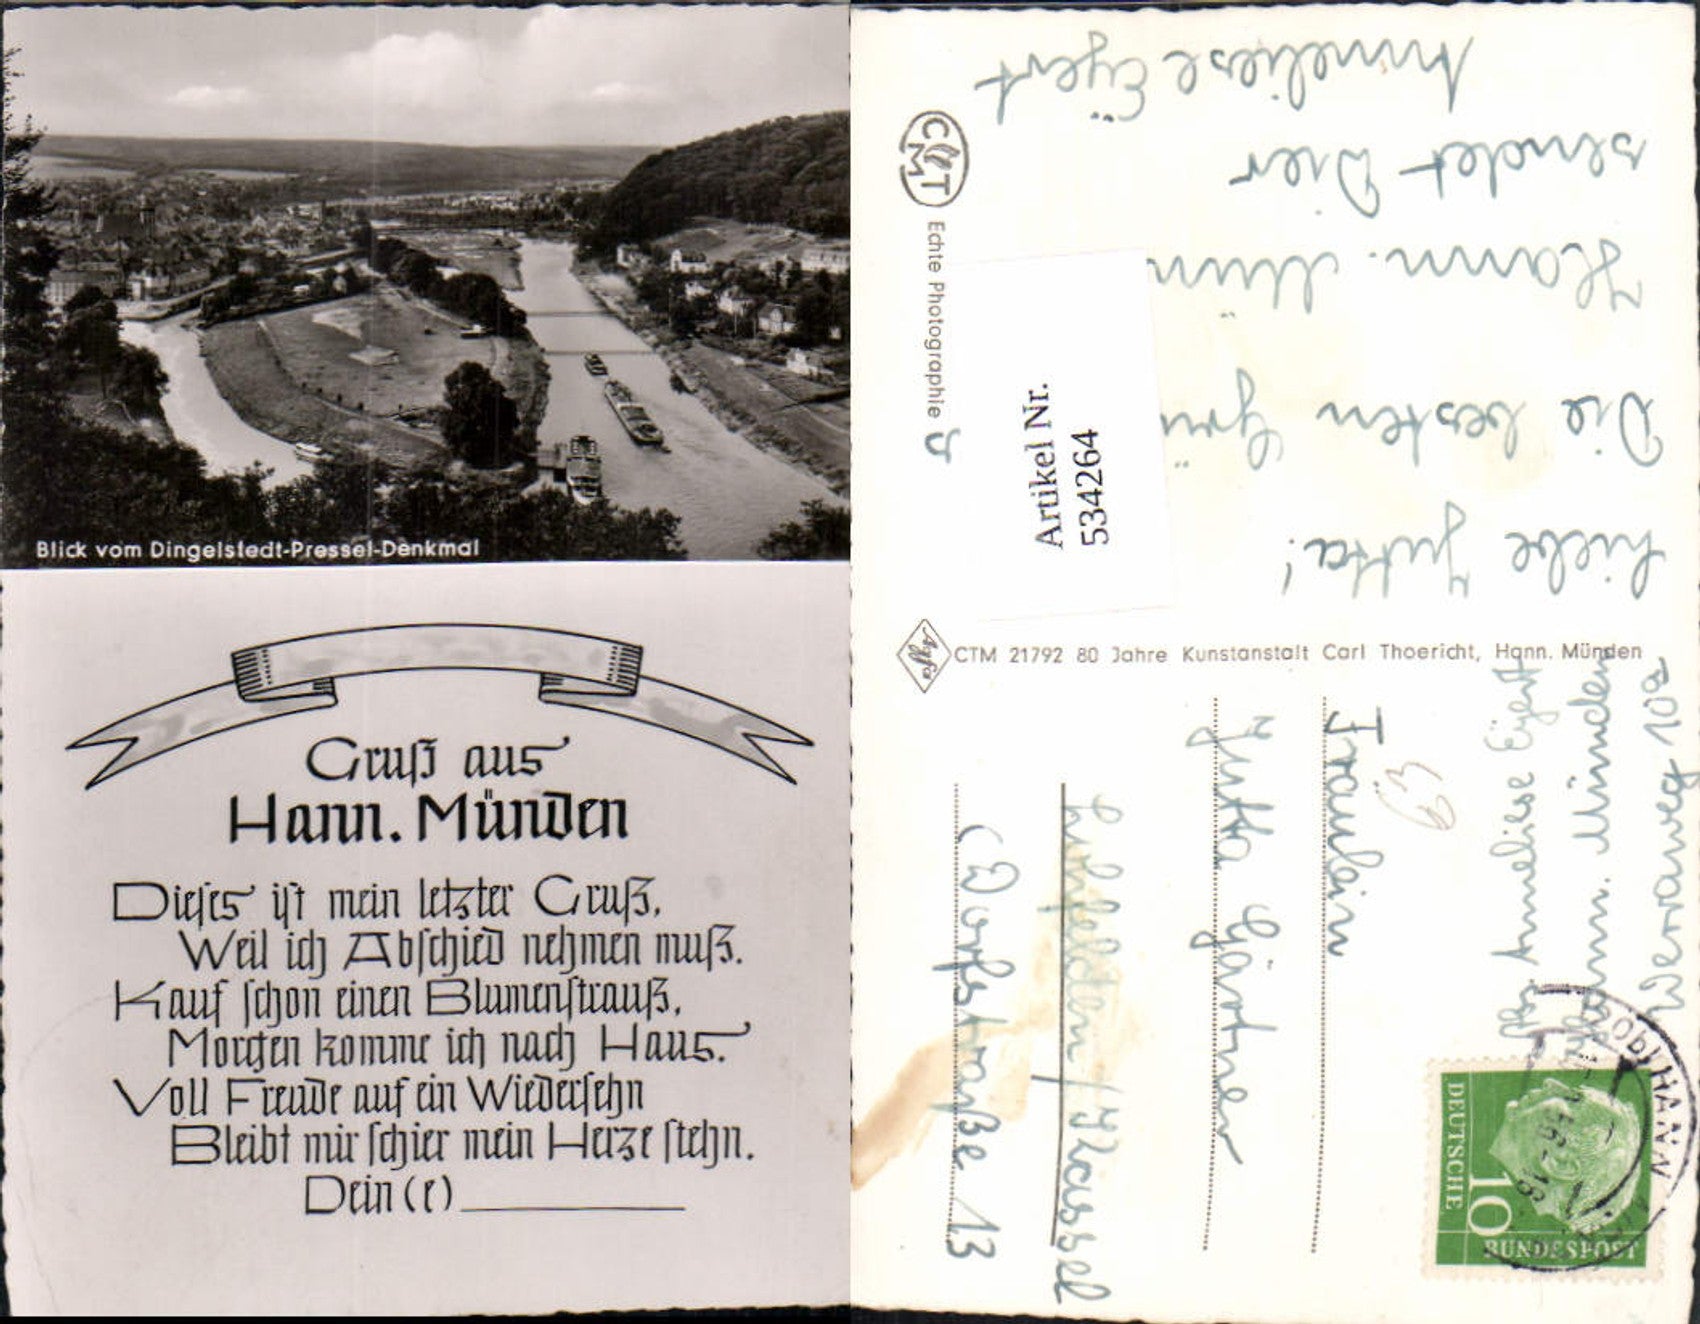 Blick vom Dingelstedt-Pressel-Denkmal
Gruß aus
Hann. Münden
Dieses ist mein letzter Gruß,
Weil ich Abschied nehmen muß.
Kauf schon einen Blumenstrauß,
Morgen komme ich nach Haus.
Voll Freude auf ein Wiedersehn
Bleibt mir schier mein Herze stehn.
Dein(e)
Liebe Jutta!
Die besten Grü
Hann. Mün
sendet Dier
Anneliese Eyert
CMT
Echte Photographie
Artikel Nr.
534264
Agfa
CTM 21792 80 Jahre Kunstanstalt Carl Thoericht, Hann. Münden
Abs. Anneliese Eyert
Hann. Münden
Werraweg 10a
63
Fräulein
Jutta Gärtner
Lohfelden / Kassel
(Dorfstraße 13
DEUTSCHE
10
BUNDESPOST
HANN